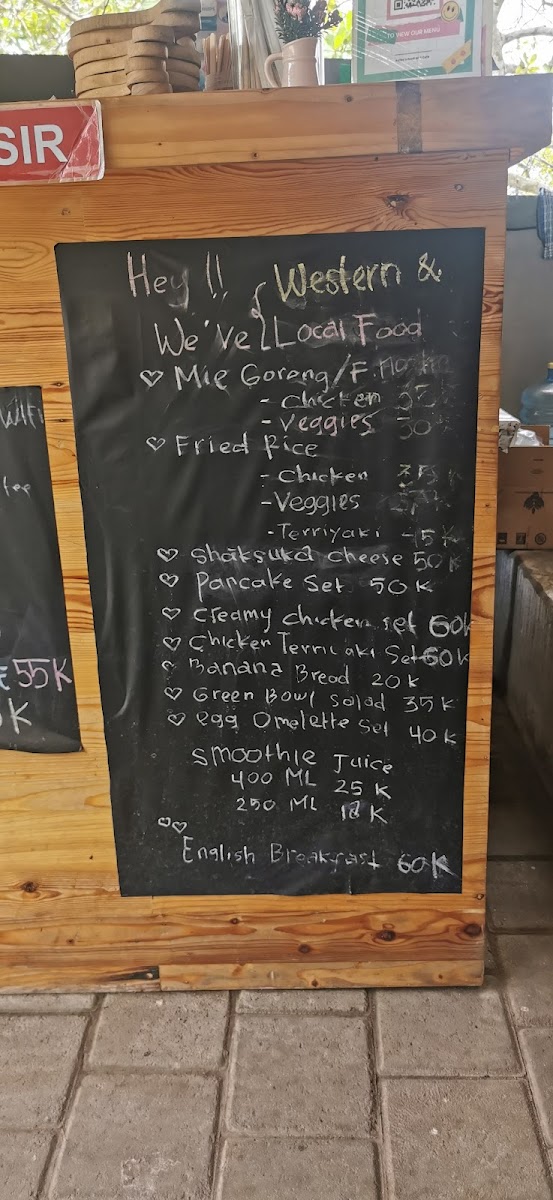 TO VIEW OUR MENU
SIR
Hey !! Western &
We've Local Food
Mie Goreng/F.
- Chicken
- Veggies 30K
Fried Rice
- Chicken 35K
- Veggies
- Terriyaki 45K
Shaksuka cheese 50K
Pancake Set 50K
Creamy chicken set 60K
Chicken Terriyaki Set 60K
Banana Bread 20K
Green Bowl Salad 35K
egg Omelette Set 40K
Smoothie Juice
400 ML 25K
250 ML
English Breakfast 60K
55K
K